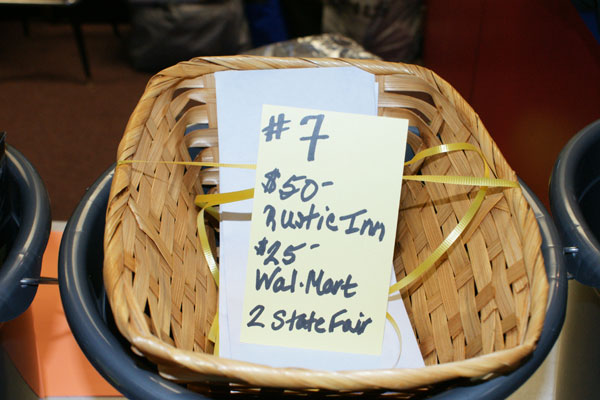 # 7
$50-
Rustic Inn
$25-
Wal-Mart
2 State Fair